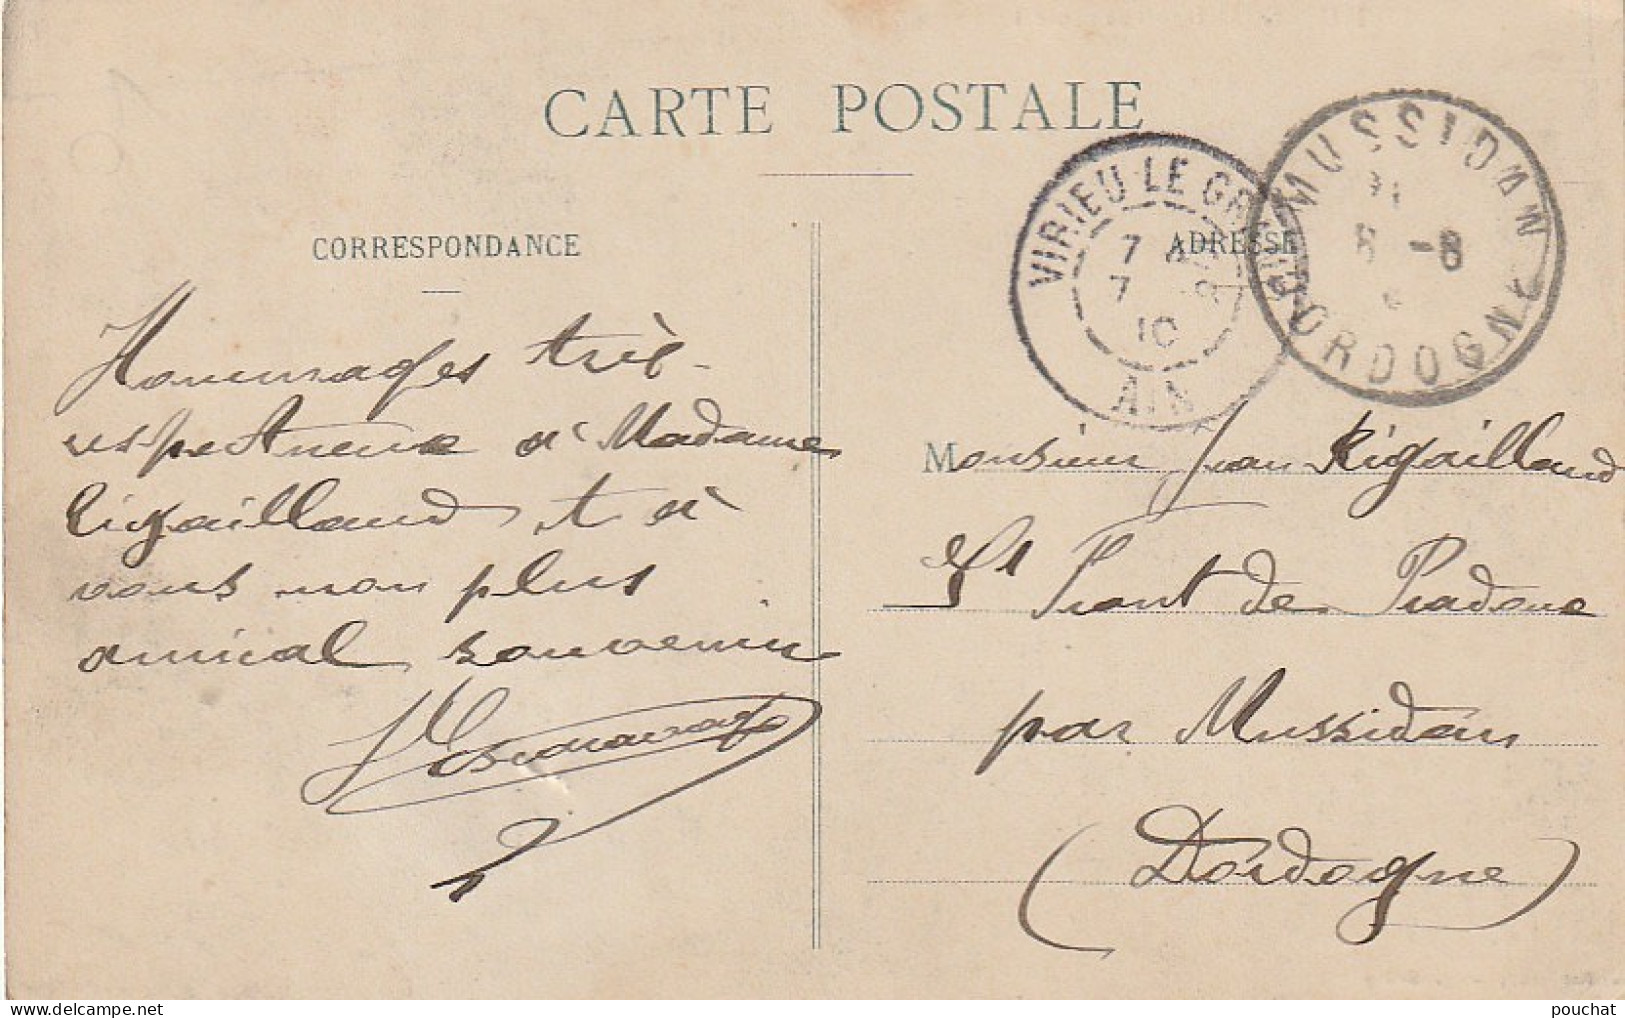 CARTE POSTALE
CORRESPONDANCE
ADRESSE
VIRIEU LE GRAND
7
7
10
AIN
MUSSIDAN
8 -8
DORDOGNE
Hommages très
respectueux à Madame
Rigailland et à
vous mon plus
amical souvenir
Monsieur Jean Rigaillaud
St Front de Pradoux
par Mussidan
(Dordogne)
pouchat